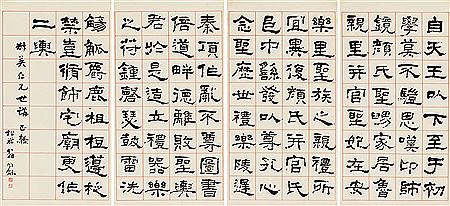 自天王以下至于初
學莫不冀思嘆卬師
鏡顏氏聖舅家居魯
親里并官聖妃在安
樂里聖族之親禮所
宜異復顏氏并官氏
邑中繇發以尊孔心
念聖歷世禮樂陵遲
秦項作亂不尊圖書
倍道畔德離敗聖輿
君於是造立禮器樂
之音符鍾磬瑟雷洗
觴觚爵鹿柤梪籩柉
禁壺脩飾宅廟更作
二輿
英仁兄世講